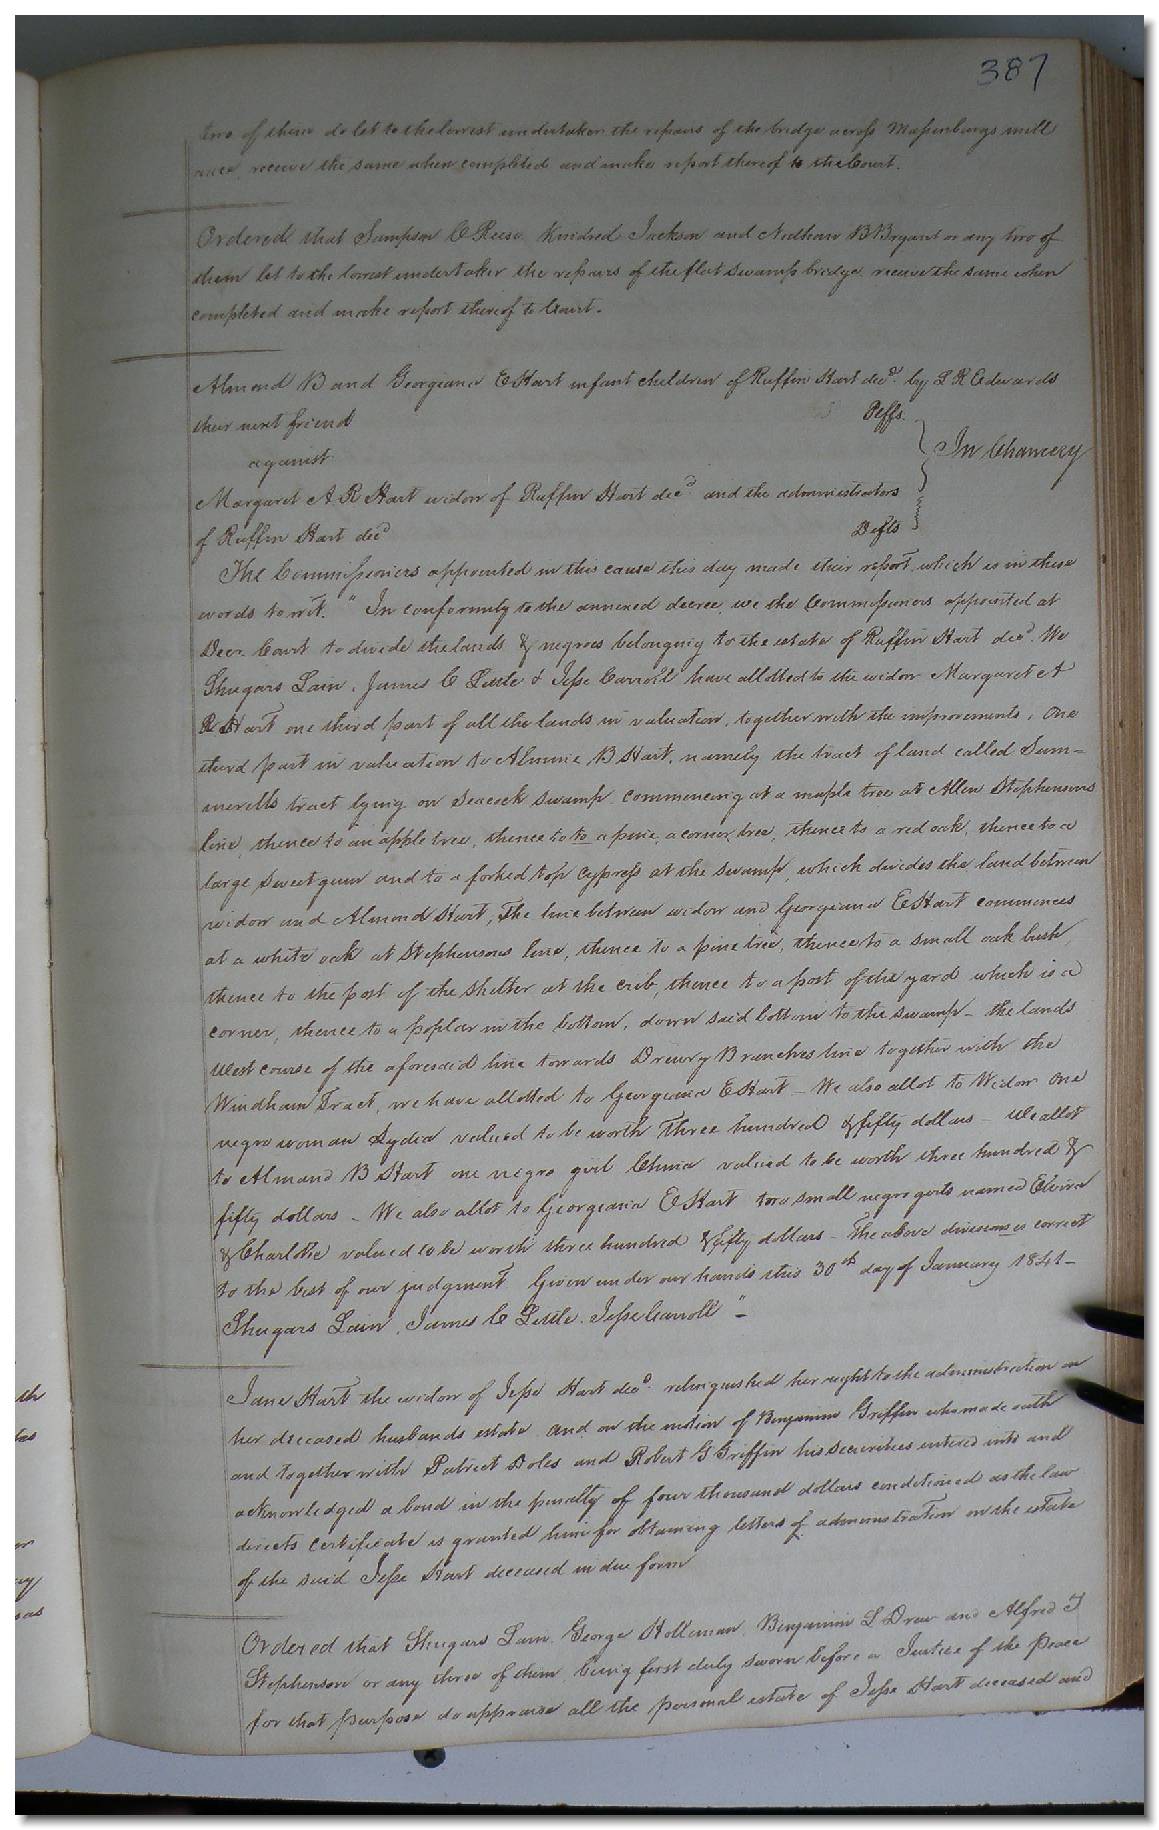 387
two of them do let to the lowest undertaker the repairs of the bridge across Massenburgs mill
race, receive the same when completed and make report thereof to the Court.
Ordered that Sampson C Reese, Kindred Jackson and Nedham B Bryant or any two of
them let to the lowest undertaker the repairs of the flat swamp bridge receive the same when
completed and make report thereof to Court.
Almond B and Georgiana E Hart infant children of Ruffin Hart decd. by L R Edwards
their next friend Peffs.
against
In Chancery
Margaret A. R Hart widow of Ruffin Hart decd and the administrators
of Ruffin Hart decd Defts
The Commissioners appointed in this cause this day made their report, which is in these
words to wit. "In conformity to the annexed decree, we the Commissioners appointed at
Decr. Court to divide the lands & negroes belonging to the estate of Ruffin Hart decd. We
Shugars Lain, James C Little & Jesse Carroll have allotted to the widow Margaret A
R Hart one third part of all the lands in valuation, together with the improvements, One
third part in valuation to Almine B Hart, namely the tract of land called Sum-
merells tract lying on Seacock swamp, commencing at a maple tree at Allen Stephensons
line, thence to an apple tree, thence to to a pine, a corner tree, thence to a red oak, thence to a
large sweet gum and to a forked top cypress at the swamp, which divides the land between
widow and Almond Hart, The line between widow and Georgiana E Hart commences
at a white oak at Stephensons line, thence to a pine tree, thence to a small oak bush,
thence to the post of the shelter at the crib, thence to a post of the yard which is a
corner, thence to a poplar in the bottom, down said bottom to the swamp - the lands
West course of the aforesaid line towards Drewry Branches line together with the
Windham Tract, we have allotted to Georgiana E Hart - We also allot to Widow one
negro woman Lydia valued to be worth Three hundred & fifty dollars - We allot
to Almand B Hart one negro girl China valued to be worth three hundred &
fifty dollars - We also allot to Georgeana E Hart two small negro girls named Elvira
& Charlotte valued to be worth three hundred & fifty dollars - The above division is correct
to the best of our judgment Given under our hands this 30th day of January 1841 -
Shugars Lain, James C Little, Jesse Carroll" -
Jane Hart the widow of Jesse Hart decd. relinquished her right to the administration on
her deceased husbands estate and on the motion of Benjamin Griffin who made oath
and together with Patrick Doles and Robert G Griffin his securities entered into and
acknowledged a bond in the penalty of four thousand dollars conditioned as the law
directs certificate is granted him for obtaining letters of administration on the estate
of the said Jesse Hart deceased in due form
Ordered that Shugars Lain, George Holleman, Benjamin L Drew and Alfred T
Stephenson or any three of them, being first duly sworn before a Justice of the Peace
for that purpose do appraise all the personal estate of Jesse Hart deceased and